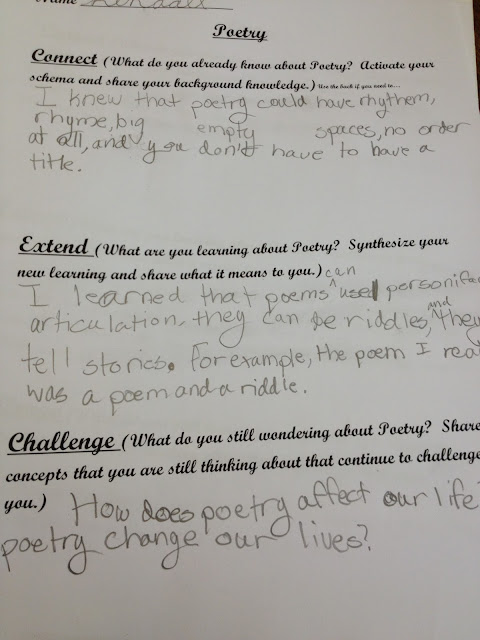 Name Kendall
Poetry
Connect (What do you already know about Poetry? Activate your
schema and share your background knowledge.) Use the back if you need to...
I knew that poetry could have rhythem,
rhyme, big empty spaces, no order
at all, and you don't have to have a
title.
Extend (What are you learning about Poetry? Synthesize your
new learning and share what it means to you.)
I learned that poems can use personifac
articulation, they can be riddles, and they
tell stories. For example, the poem I rea
was a poem and a riddle.
Challenge (What do you still wondering about Poetry? Share
concepts that you are still thinking about that continue to challenge
you.) How does poetry affect our life?
poetry change our lives?